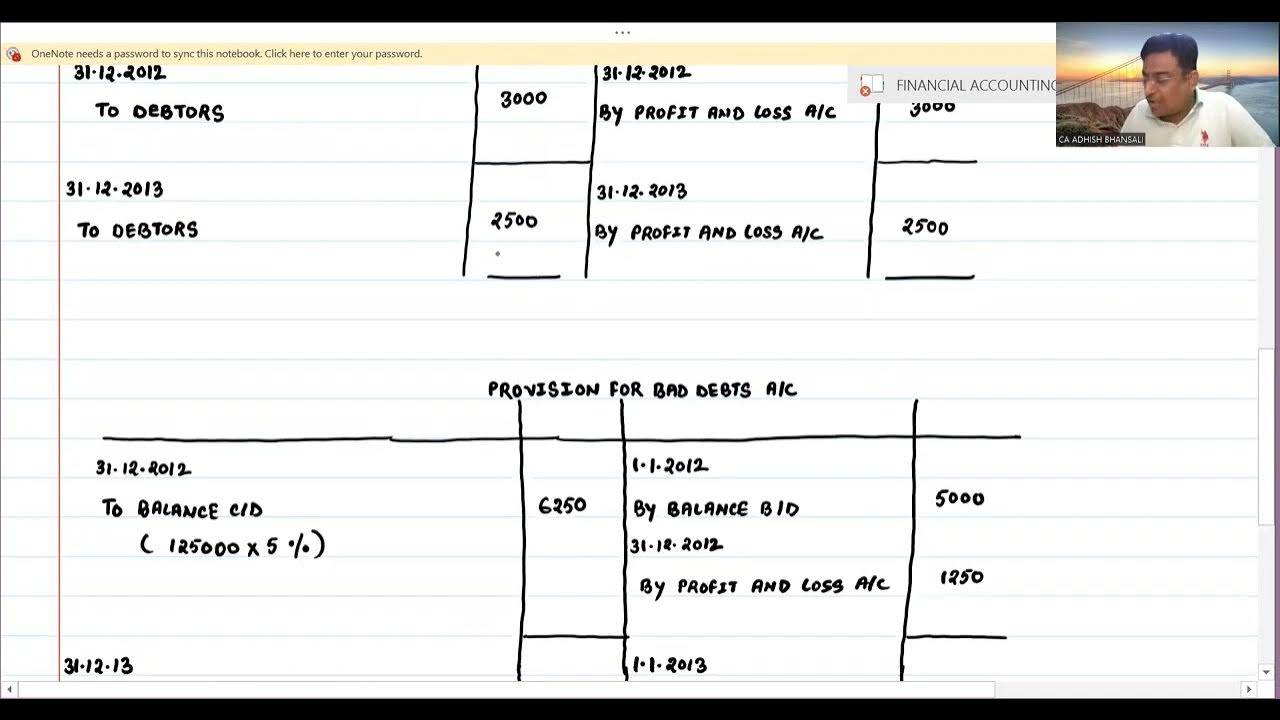 ...
OneNote needs a password to sync this notebook. Click here to enter your password.
FINANCIAL ACCOUNTING
CA ADHISH BHANSALI
31.12.2012 31.12.2012
TO DEBTORS 3000 BY PROFIT AND LOSS A/C 3000
31.12.2013 31.12.2013
TO DEBTORS 2500 BY PROFIT AND LOSS A/C 2500
PROVISION FOR BAD DEBTS A/C
31.12.2012 1.1.2012
TO BALANCE C/D 6250 BY BALANCE B/D 5000
( 125000 x 5 %) 31.12.2012
BY PROFIT AND LOSS A/C 1250
31.12.13 1.1.2013